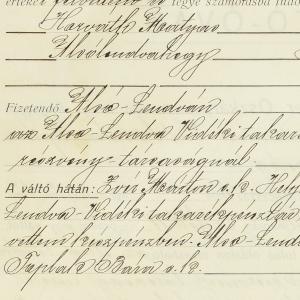 értékét felvettem és tegye számadásba tudó
Horváth Mátyás
Alsólendvahegy
Fizetendő Alsó-Lendván
az Alsó-Lendva Vidéki takaré
részvény-társaságnál.
A váltó hátán: Zver Márton s.k. Hely
Lendva-Vidéki takarékpénztár
vettem készpénzben. Alsó-Lend
Toplak Bára s.k.